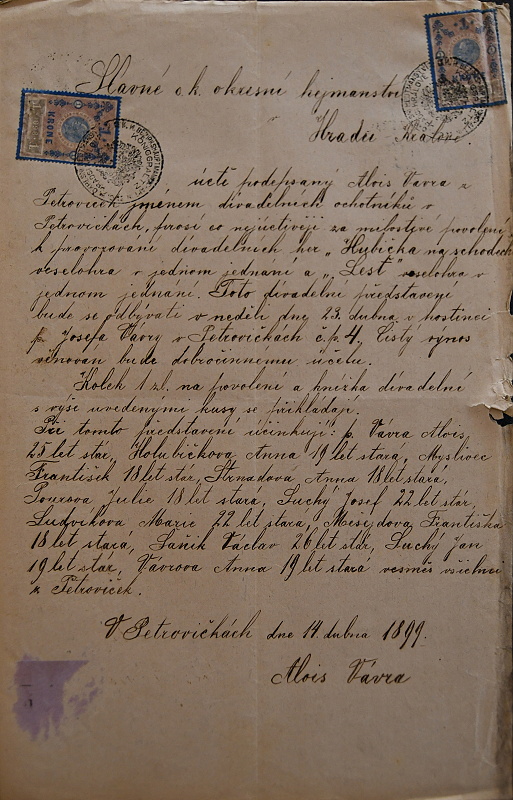 Slavné c. k. okresní hejmanství
Hradci Králové.
KRONE
KRONE
úctě podepsaný Alois Vávra z
Petroviček jménem divadelních ochotníků v
Petrovičkách, prosí co nejuctivěji za milostivé povolení
k provozování divadelních her „Hubička na schodech
veselohra v jednom jednání a „Lest" veselohra v
jednom jednání. Toto divadelní představení
bude se odbývati v neděli dne 23. dubna v hostinci
p. Josefa Vávry v Petrovičkách č. p. 4. Čistý výnos
věnován bude dobročinnému účelu.
Kolek 1 zl. na povolení a knížka divadelní
s výše uvedenými kusy se přikládají.
Při tomto představení účinkují: p. Vávra Alois,
25 let stár, Holubičkova Anna 19 let stara, Myslivec
František 18 let stár, Strnadová Anna 18 let stará,
Poursova Julie 18 let stará, Suchý Josef 22 let stár,
Ludvíkova Marie 22 let stará, Mesejdova Františka
18 let stará, Šaňik Václav 26 let stár, Suchý Jan
19 let stár, Vávrova Anna 19 let stará vesměs všichni
z Petroviček.
V Petrovičkách dne 14. dubna 1899.
Alois Vávra